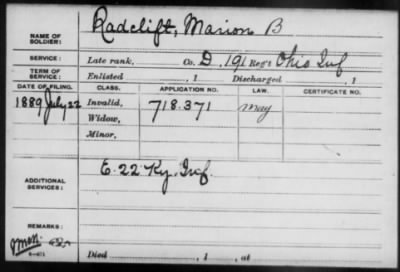 NAME OF SOLDIER: Radclift, Marion B
SERVICE: Late rank, Co. D, 191 Reg't Ohio Inf
TERM OF SERVICE: Enlisted , 1 Discharged , 1
DATE OF FILING. CLASS. APPLICATION NO. LAW. CERTIFICATE NO.
1889 July 22 Invalid, 718.371 May
Widow,
Minor,
ADDITIONAL SERVICES: E. 22 Ky. Inf.
REMARKS:
Died , 1 , at